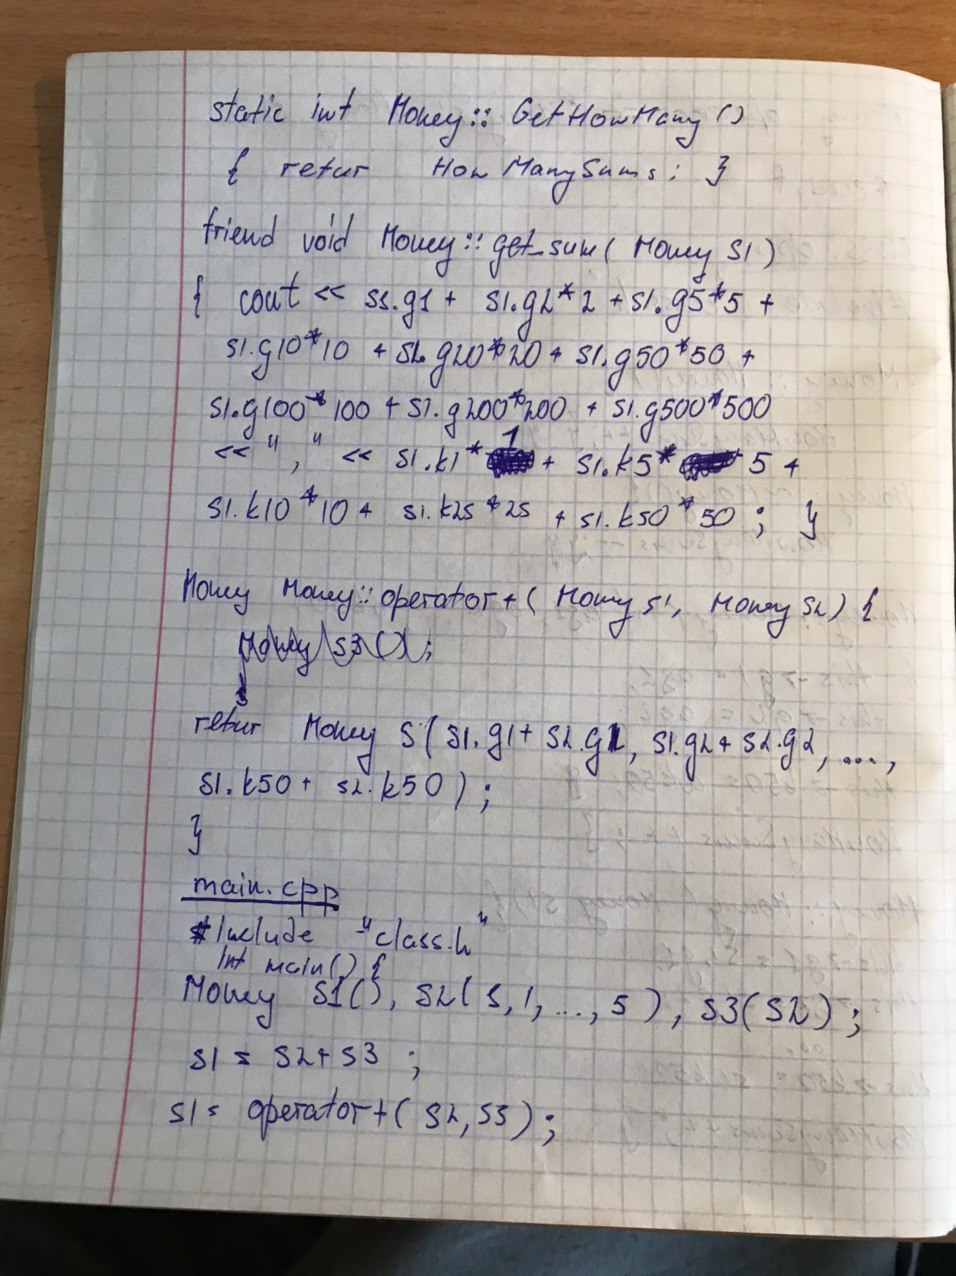 static int Money:: GetHowMany ()
{ retur HowManySums; }
friend void Money:: get_sum( Money s1)
{ cout << s1.g1 + s1.g2*2 + s1.g5*5 +
s1.g10*10 + s1.g20*20 + s1.g50*50 +
s1.g100*100 + s1.g200*200 + s1.g500*500
<< "," << s1.k1*1 + s1.k5* 5 +
s1.k10*10 + s1.k25*25 + s1.k50*50 ; }
Money Money::operator+( Money s1, Money s2) {
Money s3();
retur Money s(s1.g1+ s2.g1, s1.g2+ s2.g2, ...,
s1.k50+ s2.k50);
}
main.cpp
#Include "class.h"
Int main() {
Money s1(), s2(5,1,...,5), s3(s2);
s1 = s2+s3 ;
s1= operator+( s2,s3);